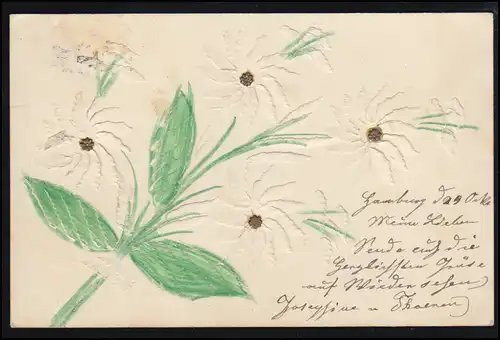 Hamburg d 29 Okt
Meine Lieben
Sende euch die
Herzlichsten Grüse
auf Wiedersehen
Josephine u